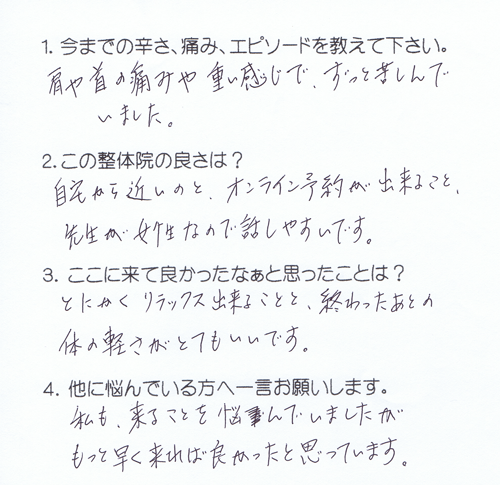 1. 今までの辛さ、痛み、エピソードを教えて下さい。
肩や首の痛みや重い感じで、ずっと苦しんで
いました。
2.この整体院の良さは？
自宅から近いのと、オンライン予約が出来ること、
先生が女性なので話しやすいです。
3. ここに来て良かったなぁと思ったことは？
とにかくリラックス出来ることと、終わったあとの
体の軽さがとてもいいです。
4. 他に悩んでいる方へ一言お願いします。
私も、来ることを悩んでいましたが
もっと早く来れば良かったと思っています。